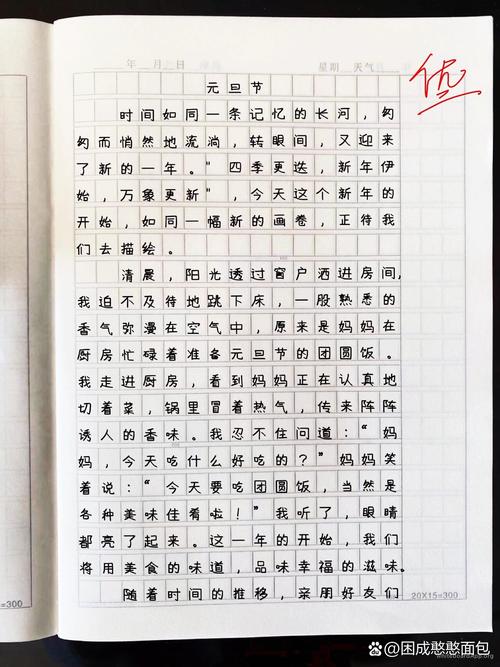 年 月 日 星期 天气
优
元旦节
时间如同一条记忆的长河，匆
匆而悄然地流淌，转眼间，又迎来
了新的一年。"四季更迭，新年伊
始，万象更新"，今天这个新年的
开始，如同一幅新的画卷，正待我
们去描绘。
清晨，阳光透过窗户洒进房间，
我迫不及待地跳下床，一股熟悉的
香气弥漫在空气中，原来是妈妈在
厨房忙碌着准备元旦节的团圆饭。
我走进厨房，看到妈妈正在认真地
切着菜，锅里冒着热气，传来阵阵
诱人的香味。我忍不住问道：“妈
妈，今天吃什么好吃的？”妈妈笑
着说：“今天要吃团圆饭，当然是
各种美味佳肴啦！”我听了，眼睛
都亮了起来。这一年的开始，我们
将用美食的味道，品味幸福的滋味。
随着时间的推移，亲朋好友们
=300
20X15=300
@困成憨憨面包